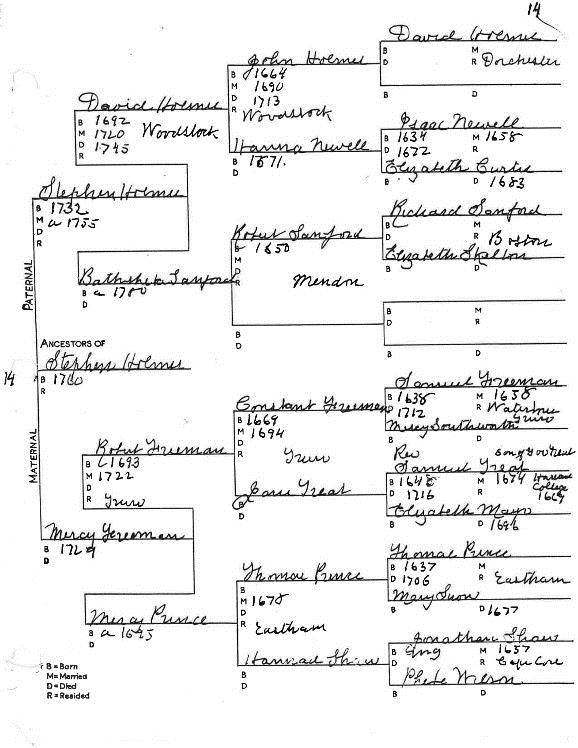 14
David Holmes
B M
R Dorchester
D
B D
John Holmes
B 1664
M 1690
D 1713
R Woodstock
Isaac Newell
B 1634 M 1658
D 1672 R
Elizabeth Curtis
B D 1683
Hanna Newell
B 1671
D
David Holmes
B 1692
M 1720 Woodstock
D 1745
R
Stephen Holmes
B 1732
M a 1755
D
R
Richard Sanford
B M
D R Boston
Elizabeth Skelton
B D
Robert Sanford
B 1650
M
D Mendon
R
B M
D R
B D
B
D
Bathsheba Sanford
B a 1780
D
PATERNAL
ANCESTORS OF
Stephen Holmes
14
B 1760
R
MATERNAL
Samuel Freeman
B 1638 M 1658
D 1712 R Truro
Mercy Southworth
B D
Constant Freeman
B 1669
M 1694
D Truro
R
Rev
Samuel Treat
B 1648 M 1674 Harvard College 1669
D 1716 R
Elizabeth Mayo
B D 1696
Jane Treat
B
D
Robert Freeman
B 1693
M 1722
D
R Truro
Mercy Freeman
B 1729
D
Thomas Prince
B 1637 M
D 1706 R Eastham
Mary Snow
B D 1677
Thomas Prince
B
M 1678
D
R Eastham
Jonathan Shaw
B Eng M 1657
D R Cape Cod
Phebe
B D
Hannah Shaw
B
D
Mercy Prince
B a 1695
D
B = Born
M = Married
D = Died
R = Resided